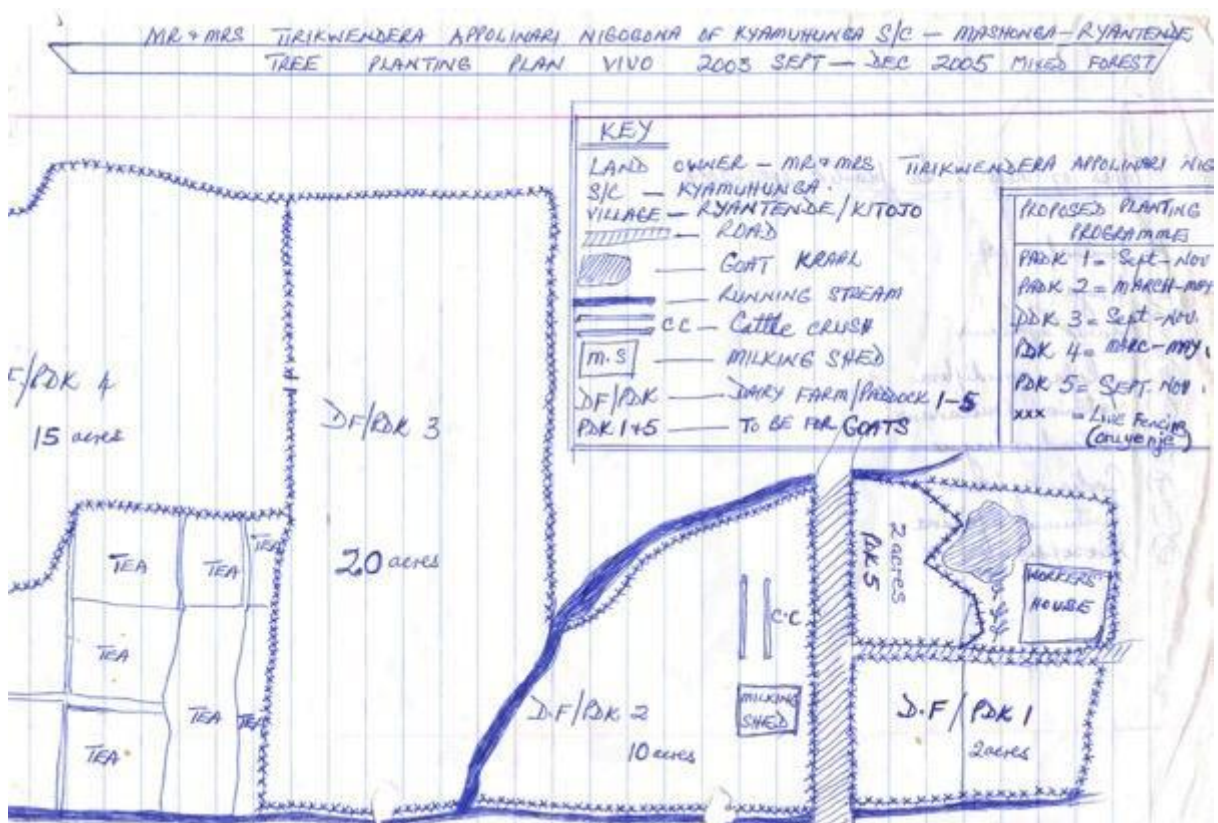 MR & MRS TIRIKWENDERA APPOLINARI NIGOBONA OF KYAMUHUNGA S/C — MASHONGA - RYANTENDE
TREE PLANTING PLAN VIVO 2003 SEPT — DEC 2005 MIXED FOREST
KEY
LAND OWNER — MR & MRS TIRIKWENDERA APPOLINARI NIG
S/C — KYAMUHUNGA.
VILLAGE — RYANTENDE/KITOJO
— ROAD
— GOAT KRAAL
— RUNNING STREAM
CC — Cattle CRUSH
M.S — MILKING SHED
DF/PDK — DAIRY FARM/PADDOCK 1-5
PDK 1+5 — TO BE FOR GOATS
PROPOSED PLANTING
PROGRAMME
PADK 1 = Sept-Nov
PADK 2 = MARCH-MAY
PDK 3 = Sept-Nov.
PDK 4 = MARC-MAY.
PDK 5 = SEPT. NOV.
xxx = Live Fencing
(onuyenje)
F/PDK 4
15 acres
DF/PDK 3
20 acres
TEA
TEA
TEA
TEA
TEA
TEA
TEA
D.F/PDK 2
10 acres
C.C
MILKING
SHED
PDK 5
2 acres
WORKERS
HOUSE
D.F/PDK 1
2 acres